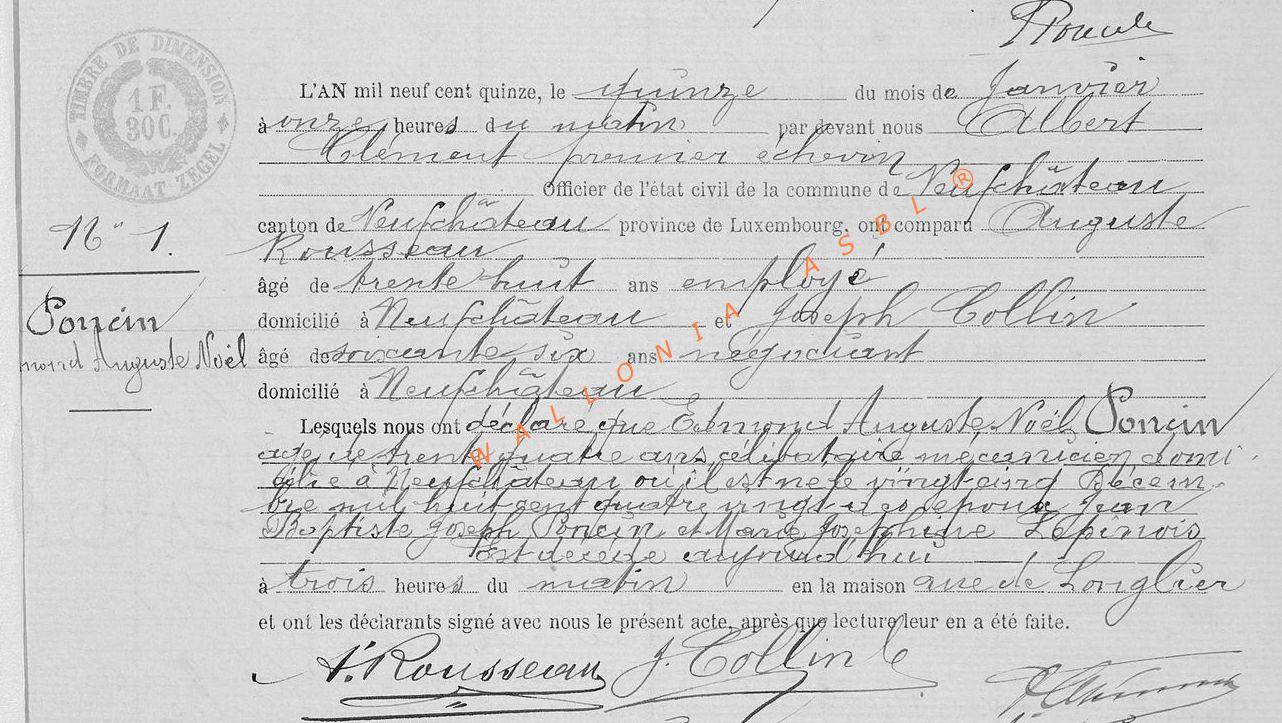 TIMBRE DE DIMENSION
1 F.
30 C.
FORMAAT ZEGEL
L'AN mil neuf cent quinze, le quinze du mois de Janvier
à onze heures du matin par devant nous Albert
Clément premier échevin
Officier de l'état civil de la commune de Neufchâteau
N° 1.
canton de Neufchâteau province de Luxembourg, ont comparu Auguste
Rousseau
âgé de trente huit ans employé
Poncin
domicilié à Neufchâteau et Joseph Collin
mond Auguste Noël
âgé de soixante six ans négociant
domicilié à Neufchâteau
Lesquels nous ont déclaré que Edmond Auguste Noël Poncin
âgé de trente quatre ans, célibataire mécanicien domi
cilié à Neufchâteau où il est né le vingt cinq Décem
bre mil huit cent quatre vingt des époux Jean
Baptiste Joseph Poncin et Marie Josephine Lepinois
Est décédé aujourd'hui
à trois heures du matin en la maison rue de Longlier
et ont les déclarants signé avec nous le présent acte, après que lecture leur en a été faite.
A. Rousseau J. Collin
WALLONIA ASBL ®